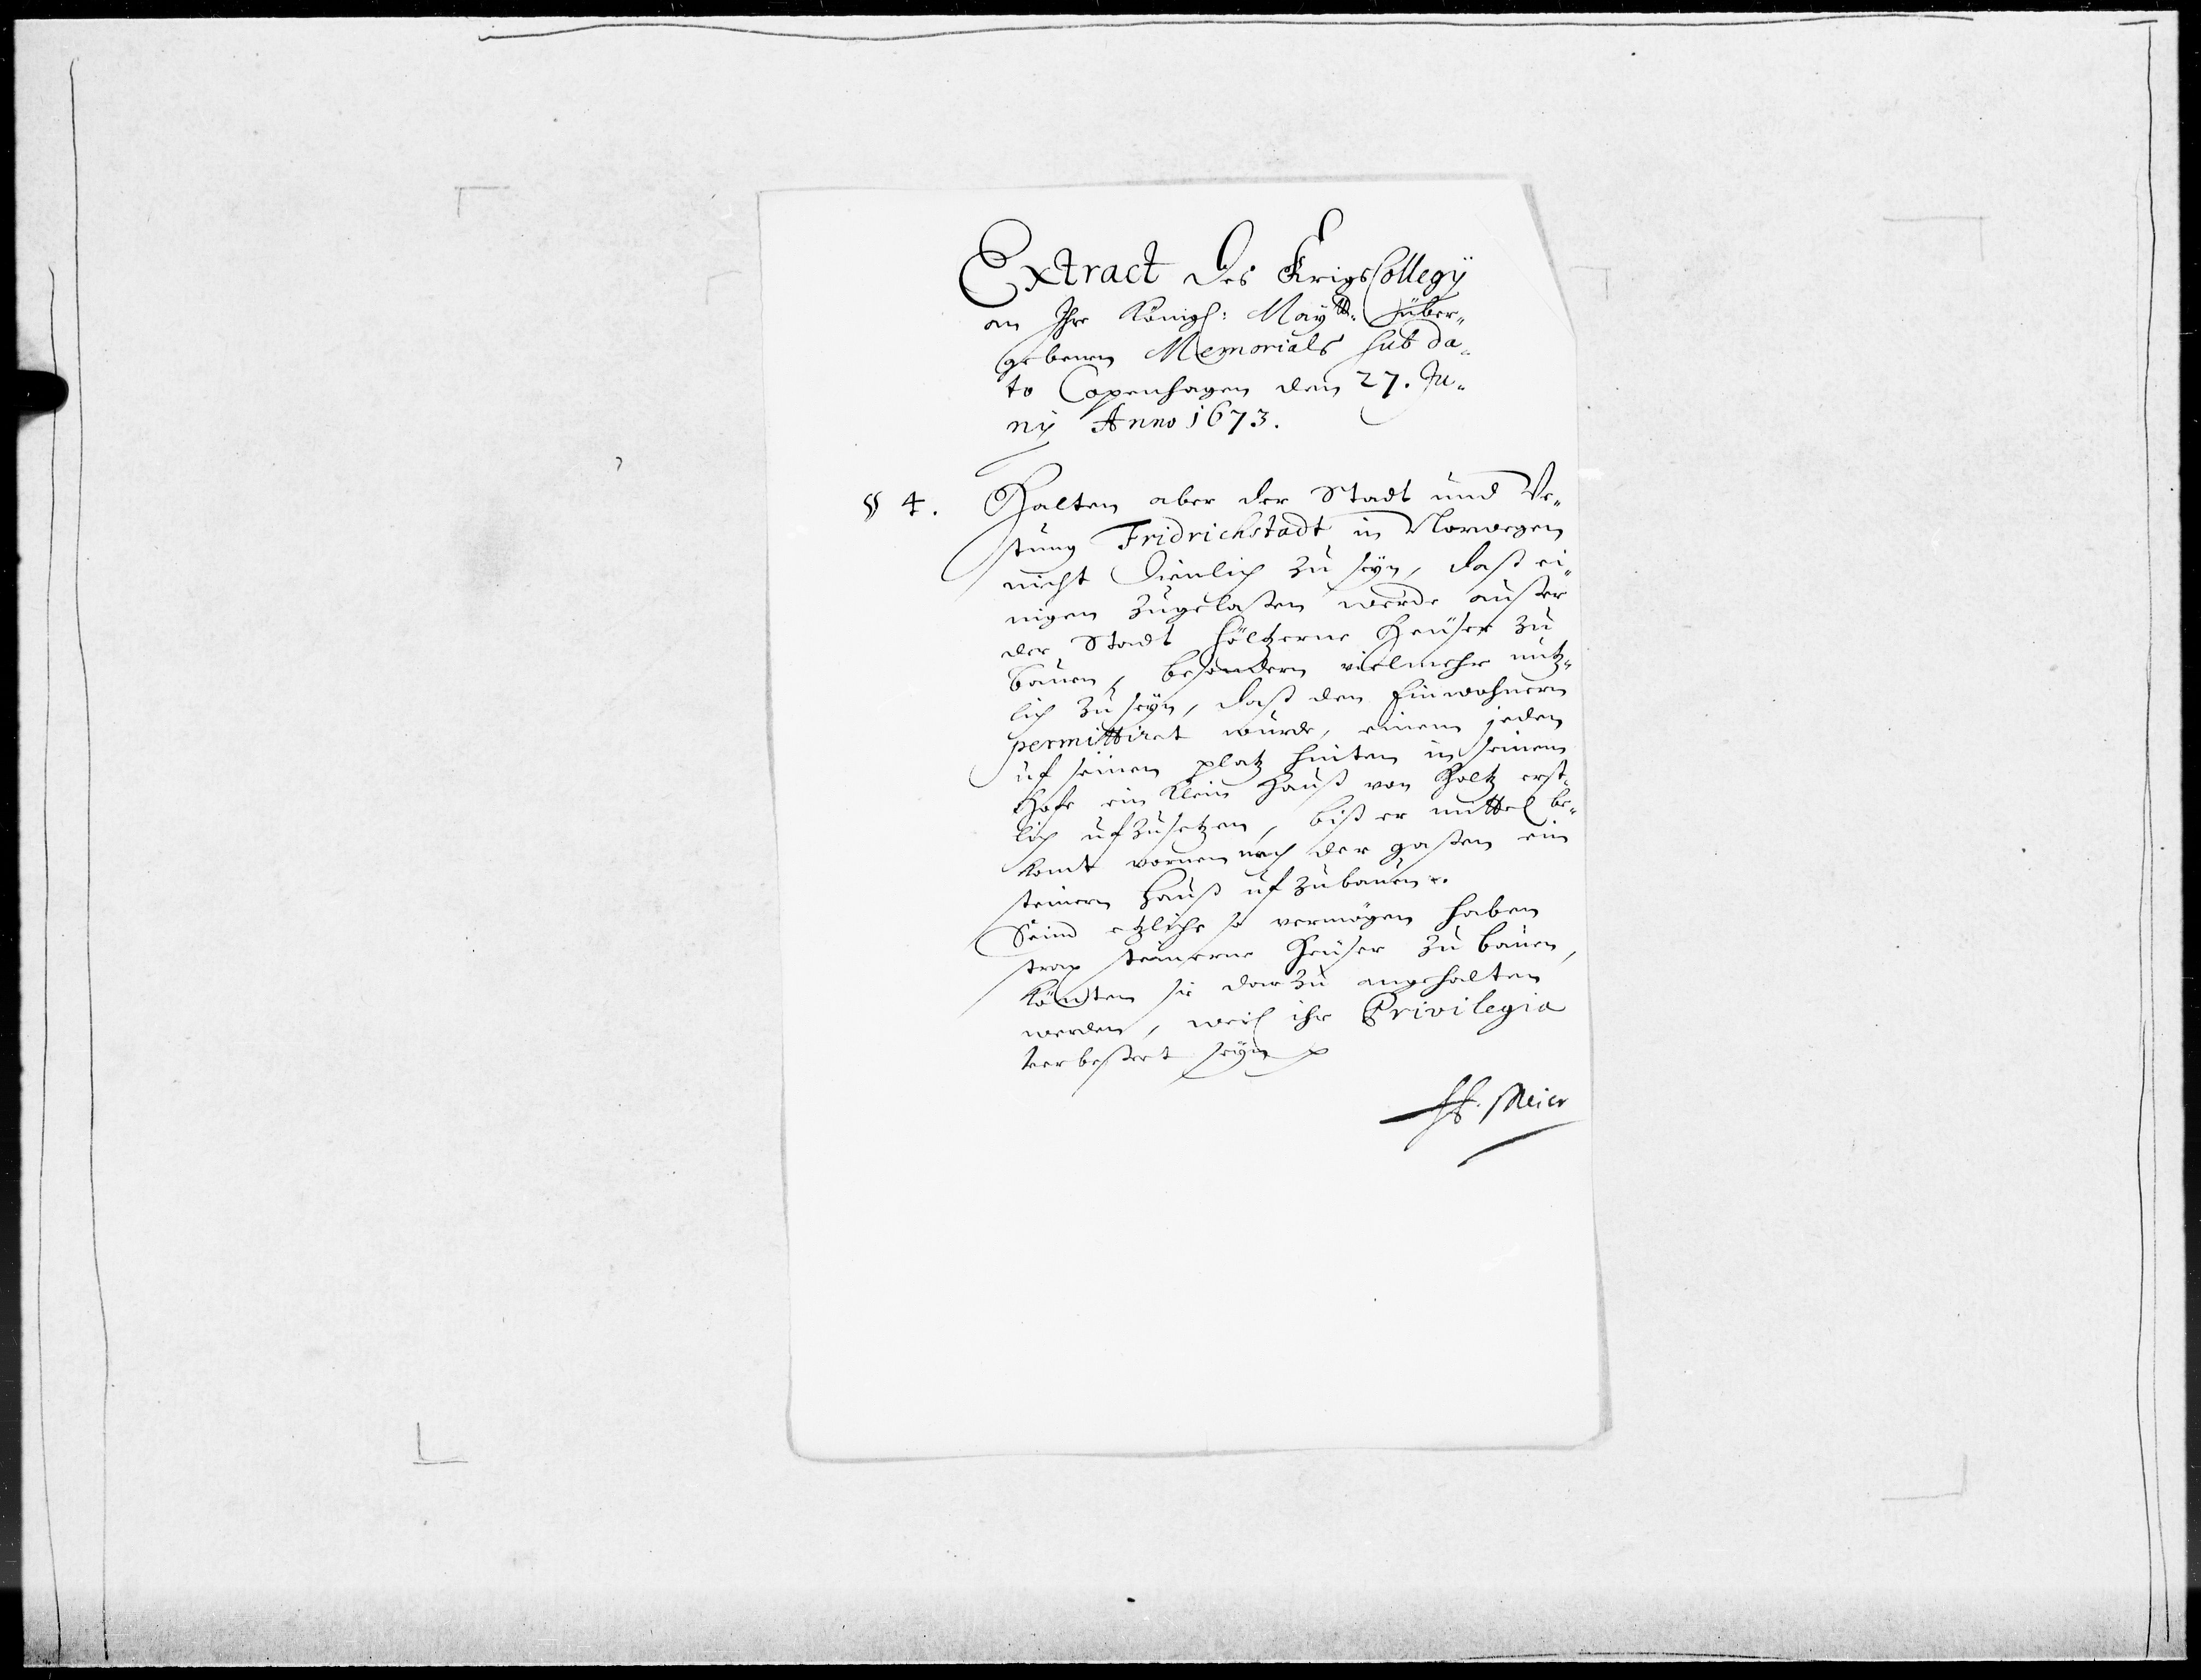 Extract des KrigsCollegÿ
an Ihre Königl: Maytt. über„
gebenen Memorials sub da„
to Copenhagen den 27. Ju„
nÿ Anno 1673.
§ 4. Halten aber der Stadt und Ve„
stung Fridrichstadt in Norwegen
nicht dienlich zu seyn, daß ei„
nigen zugelaßen werde außer
der Stadt höltzerne Heuser zu
bauen, besondern vielmehr nutz„
lich zu seyn, daß den Einwohnern
permittiret würde, einem jeden
uf seinen platz hinten in seinem
Hofe ein klein Hauß von Holtz erst„
lich ufzusetzen, biß er mittel be„
komt vornen nach der gaßen ein
steinern Hauß ufzubauen.
Seind etzliche so vermögen haben
strax steinerne Heuser zu bauen,
könten sie darzu angehalten
werden, weil ihr Privilegia
verbeßert seyn
Meier